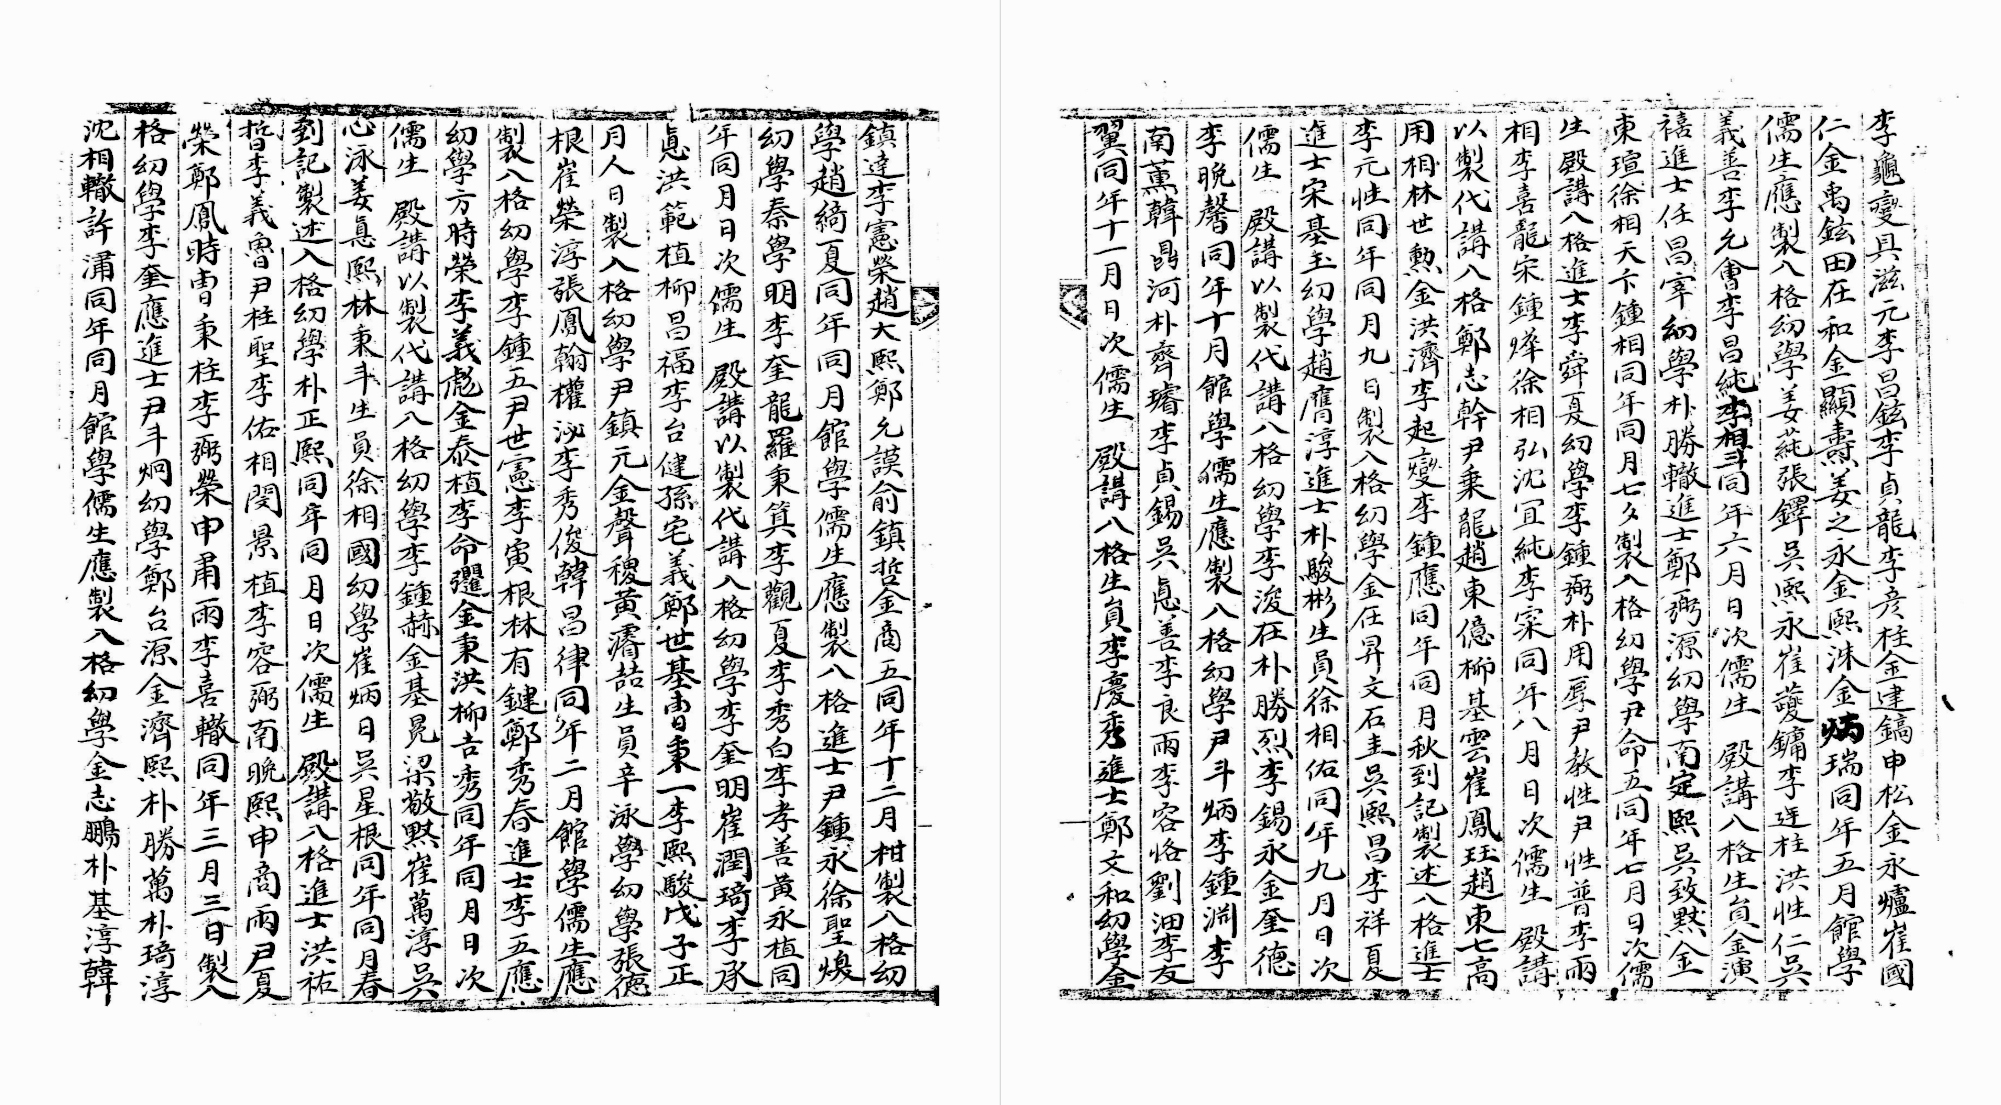 李龜燮具滋元李昌鉉李貞龍李彦柱金建鎬申松金永爐崔國
仁金禹鉉田在和金顯壽姜之永金熙洙金炳瑞同年五月館學
儒生應製入格幼學姜蒓張鐸吳熙永崔蘐鏞李珽柱洪性仁吳
義善李允會李昌純李相斗同年六月日次儒生 殿講入格生員金演
禧進士任昌宰幼學朴勝轍進士鄭弼源幼學南定熙吳致默金
東瑄徐相天卞鍾相同年同月七夕製入格幼學尹命五同年七月日次儒
生殿講入格進士李舜夏幼學李鍾弼朴用厚尹敎性尹性普李雨
相李喜龍宋鍾燁徐相弘沈宜純李寀同年八月日次儒生 殿講
以製代講入格鄭志幹尹秉龍趙東億柳基雲崔鳳珏趙東七高
用相林世勲金洪濟李起燮李鍾應同年同月秋到記製述入格進士
李元性同年同月九日製入格幼學金在昇文石圭吳熙昌李祥夏
進士宋基玉幼學趙膺淳進士朴駿彬生員徐相佑同年九月日次
儒生 殿講以製代講入格幼學李浚在朴勝烈李錫永金奎德
李晩馨同年十月館學儒生應製入格幼學尹斗炳李鍾淵李
南薰韓鼎河朴齊璿李貞錫吳悳善李良雨李容恪劉沺李友
翼同年十一月日次儒生 殿講入格生員李慶秀進士鄭文和幼學金
鎮達李憲榮趙大熙鄭允謨俞鎮哲金商五同年十二月柑製入格幼
學趙綺夏同年同月館學儒生應製入格進士尹鍾永徐聖煥
幼學秦學明李奎龍羅秉筭李觀夏李秀白李孝善黃永植同
年同月日次儒生 殿講以製代講入格幼學李奎明崔潤琦李承
悳洪範植柳昌福李台健孫宅義鄭世基曺秉一李熙駿戊子正
月人日製入格幼學尹鎮元金聲稷黃濬喆生員辛泳學幼學張德
根崔榮淳張鳳翰權泌李秀俊韓昌律同年二月館學儒生應
製入格幼學李鍾五尹世憲李寅根林有鍵鄭秀春進士李五應
幼學方時榮李義彪金泰植李命𤃬金秉洪柳吉秀同年同月日次
儒生 殿講以製代講入格幼學李鍾赫金基晃梁敬默崔萬淳吳
心泳姜悳熙林秉斗生員徐相國幼學崔炳日吳星根同年同月春
到記製述入格幼學朴正熙同年同月日次儒生 殿講入格進士洪祐
晢李義魯尹柱聖李佑相閔景植李容弼南晩熙申商雨尹夏
榮鄭鳳時曺秉柱李弼榮申肅雨李喜轍同年三月三日製入
格幼學李奎應進士尹斗炯幼學鄭台源金濟熙朴勝萬朴琦淳
沈相轍許潚同年同月館學儒生應製入格幼學金志鵬朴基淳韓